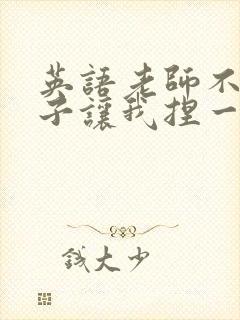 英語老師不
子讓我捏一
钱大少